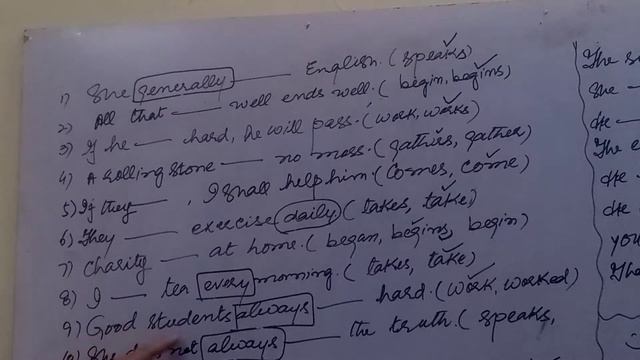 1) She generally — English. (speaks)
2) All that — well ends well. (begin, begins)
3) If he — hard, he will pass. (work, works)
4) A rolling stone — no moss. (gathers, gather)
5) If they —, I shall help him (comes, come)
6) They — exercise daily (takes, take)
7) Charity — at home. (began, begins, begin)
8) I — tea every morning. (takes, take)
9) Good students always — hard. (work, worked)
not always — the truth. (speaks,
The
She —
He —
The
He
He
you